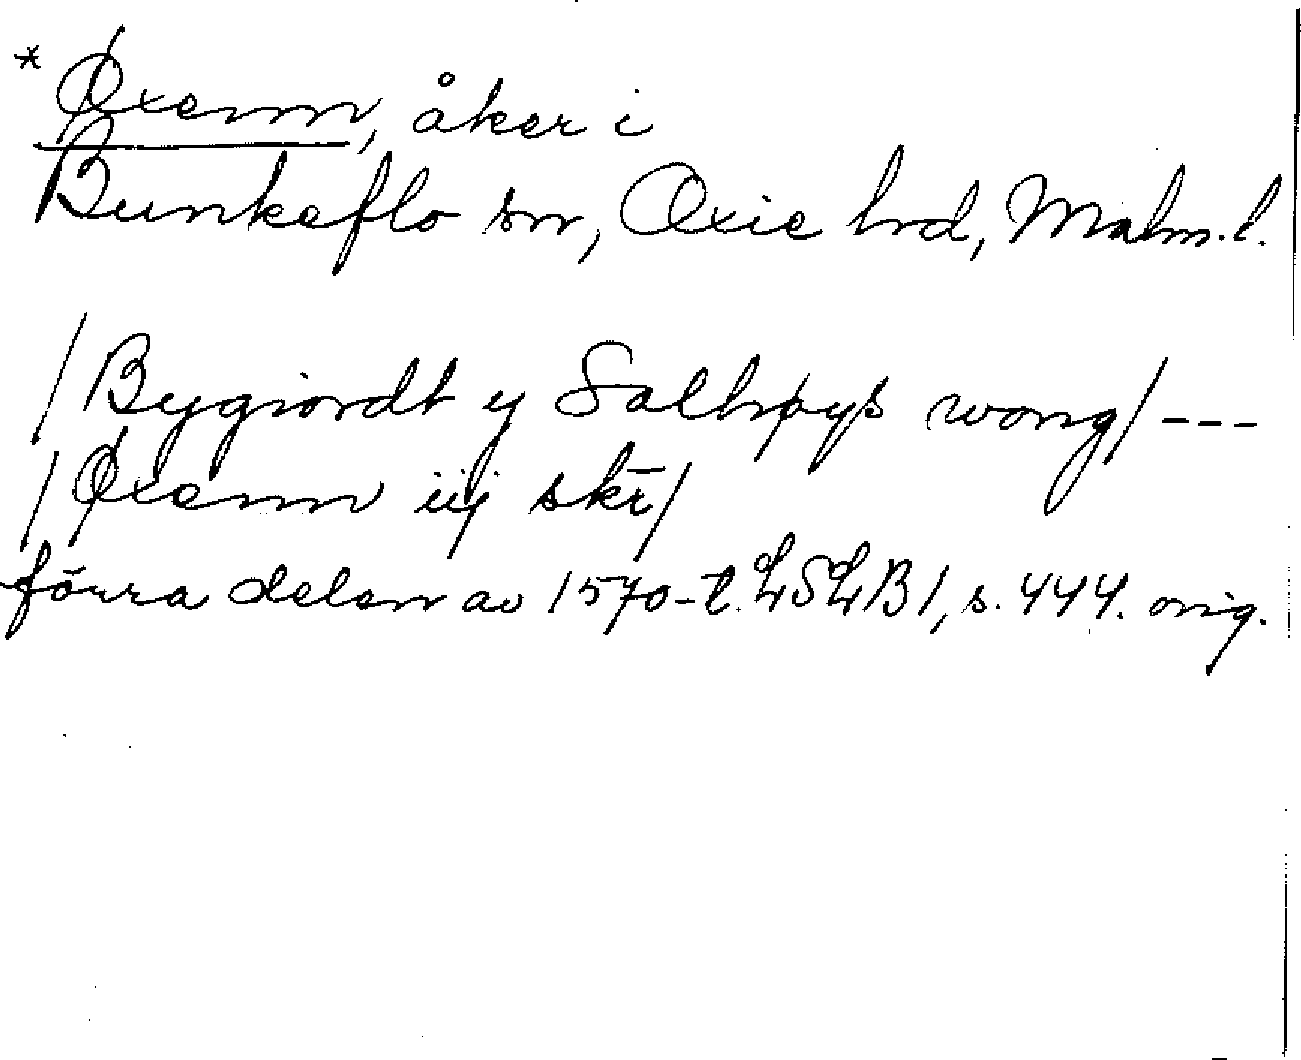 * Øxenn, åker i
Bunkeflo sn, Oxie hrd, Malm.l.
/Bygiordt y Salhøys wong/ ---
/Øxenn iij skr̄/
förra delen av 1570-t. LSLB1, s. 444. orig.